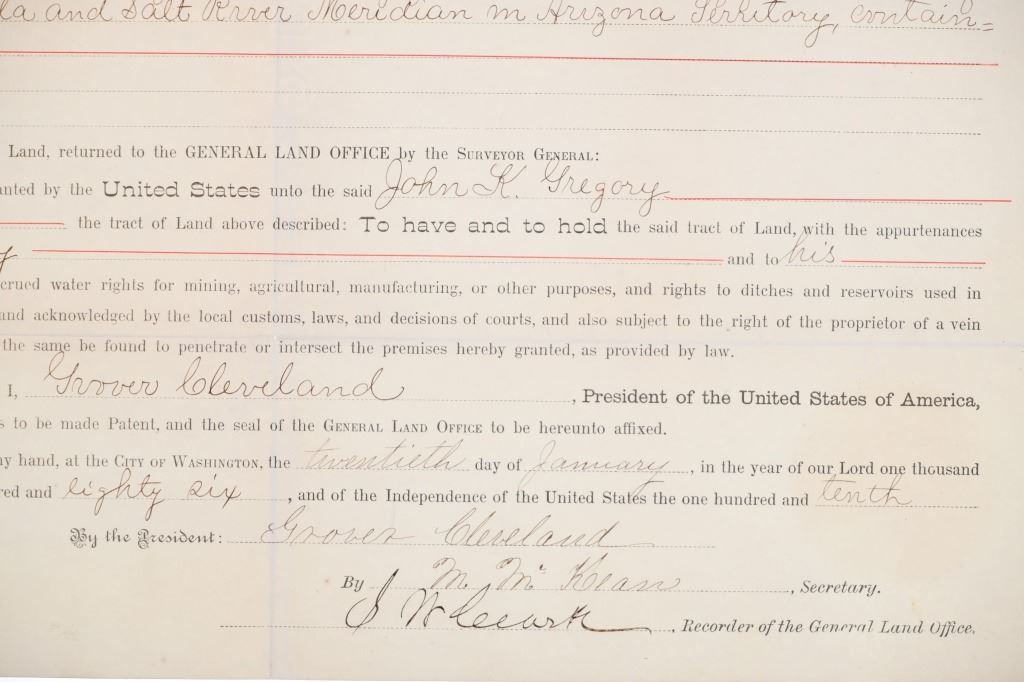 la and Salt River Meridian in Arizona Territory, contain=
Land, returned to the GENERAL LAND OFFICE by the SURVEYOR GENERAL:
anted by the United States unto the said John K. Gregory
the tract of Land above described: To have and to hold the said tract of Land, with the appurtenances
y and to his
crued water rights for mining, agricultural, manufacturing, or other purposes, and rights to ditches and reservoirs used in
and acknowledged by the local customs, laws, and decisions of courts, and also subject to the right of the proprietor of a vein
the same be found to penetrate or intersect the premises hereby granted, as provided by law.
I, Grover Cleveland, President of the United States of America,
s to be made Patent, and the seal of the GENERAL LAND OFFICE to be hereunto affixed.
my hand, at the CITY OF WASHINGTON, the twentieth day of January, in the year of our Lord one thousand
red and eighty six, and of the Independence of the United States the one hundred and tenth
By the President: Grover Cleveland
By M. McKean, Secretary.
S W Clark, Recorder of the General Land Office.